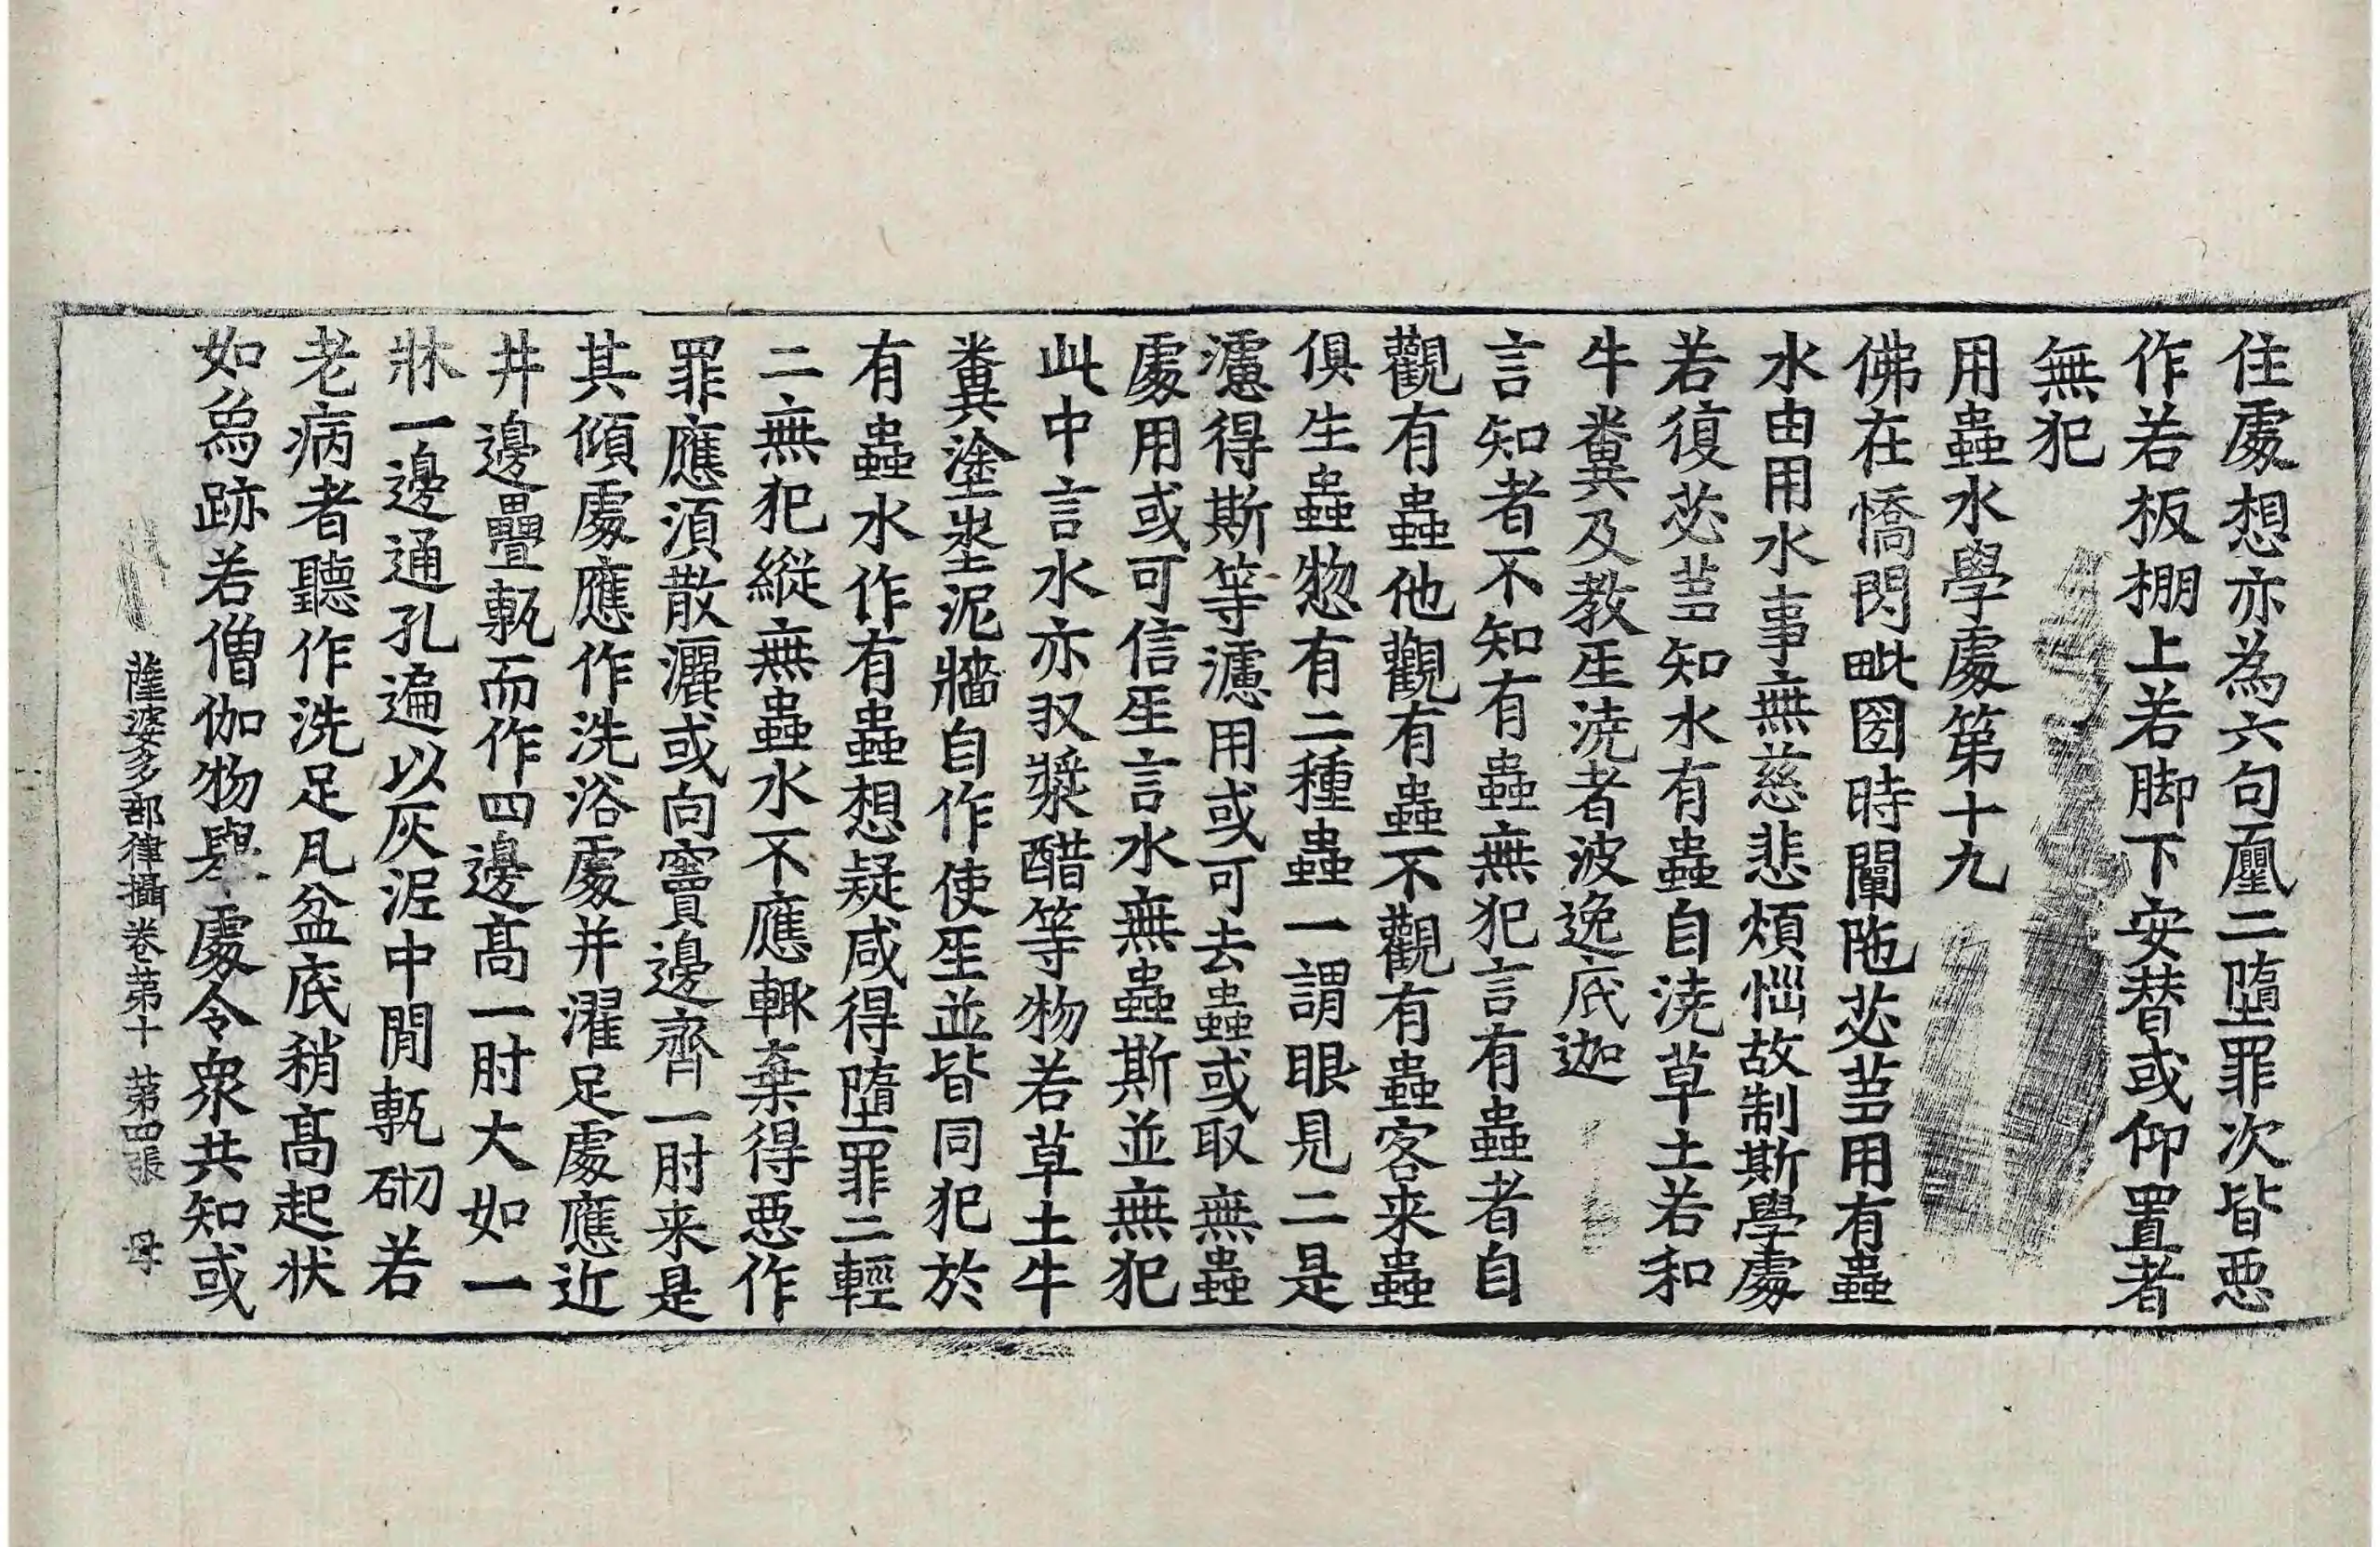 住處想亦為六句𠪱二墮罪次皆惡
作若板棚上若脚下安替或仰置者
無犯
用蟲水學處第十九
佛在憍閃毗國時闡陁苾芻用有蟲
水由用水事無慈悲煩惱故制斯學處
若復苾芻知水有蟲自澆草土若和
牛糞及教𤯔澆者波逸底迦
言知者不知有蟲無犯言有蟲者自
觀有蟲他觀有蟲不觀有蟲客来蟲
俱生蟲惣有二種蟲一謂眼見二是
濾得斯等濾用或可去蟲或取無蟲
處用或可信𤯔言水無蟲斯並無犯
此中言水亦収漿醋等物若草土牛
糞塗埿泥牆自作使𤯔並皆同犯於
有蟲水作有蟲想疑咸得墮罪二輕
二無犯縱無蟲水不應輙棄得惡作
罪應須散灑或向竇邊齊一肘来是
其傾處應作洗浴處并濯足處應近
井邊疊甎而作四邊高一肘大如一
牀一邊通孔遍以灰泥中閒甎砌若
老病者聽作洗足瓦盆底稍高起状
如爲跡若僧伽物舉處令衆共知或
薩婆多部律攝卷第十 第四張 母